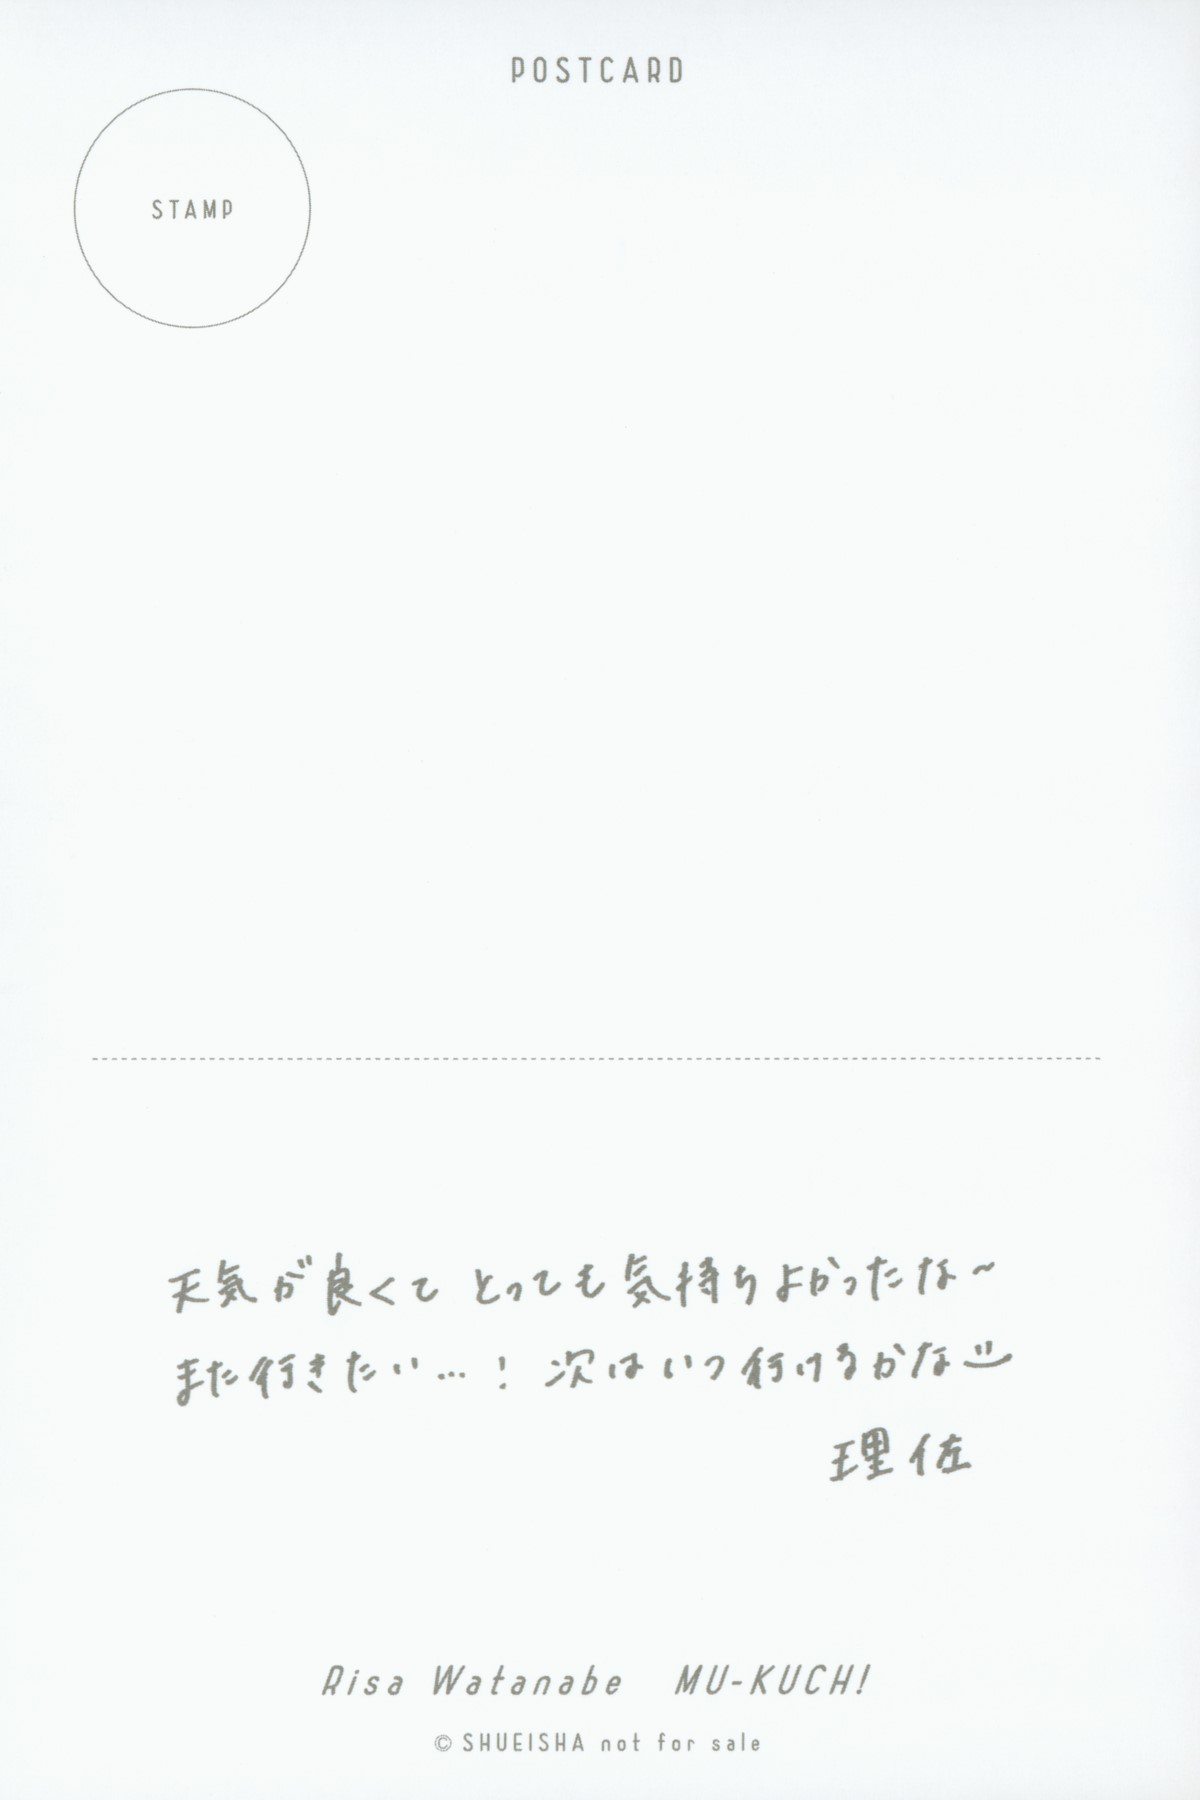 POSTCARD
STAMP
天気が良くて とっても気持ちよかったな~
また行きたい…! 次はいつ行けるかな
理佐
Risa Watanabe MU-KUCH!
© SHUEISHA not for sale